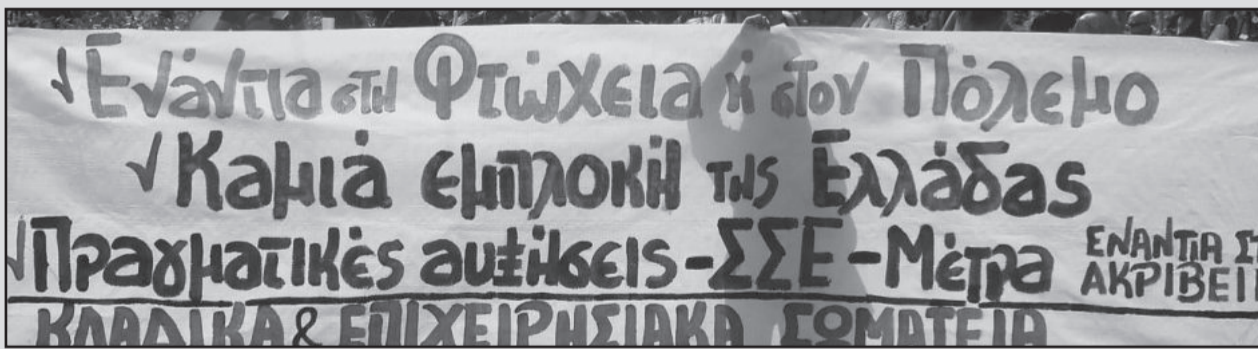 √ Ενάντια στη Φτώχεια ή στον Πόλεμο
√ Καμιά εμπλοκή της Ελλάδας
√ Πραγματικές αυξήσεις - ΣΣΕ - Μέτρα
ΕΝΑΝΤΙΑ
ΑΚΡΙΒΕΙ
ΚΛΑΔΙΚΑ & ΕΠΙΧΕΙΡΗΣΙΑΚΑ ΣΩΜΑΤΕΙΑ